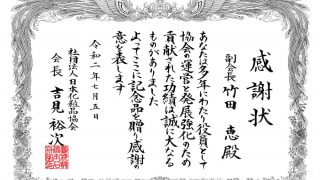 感謝状
副会長 竹田 恵殿
あなたは多年にわたり役員として
協会の運営と発展強化のため
貢献された功績は誠に大なる
ものがありました
よってここに記念品を贈り感謝の
意を表します
令和二年七月五日
社団法人日本化粧品協会
会長 吉見 裕